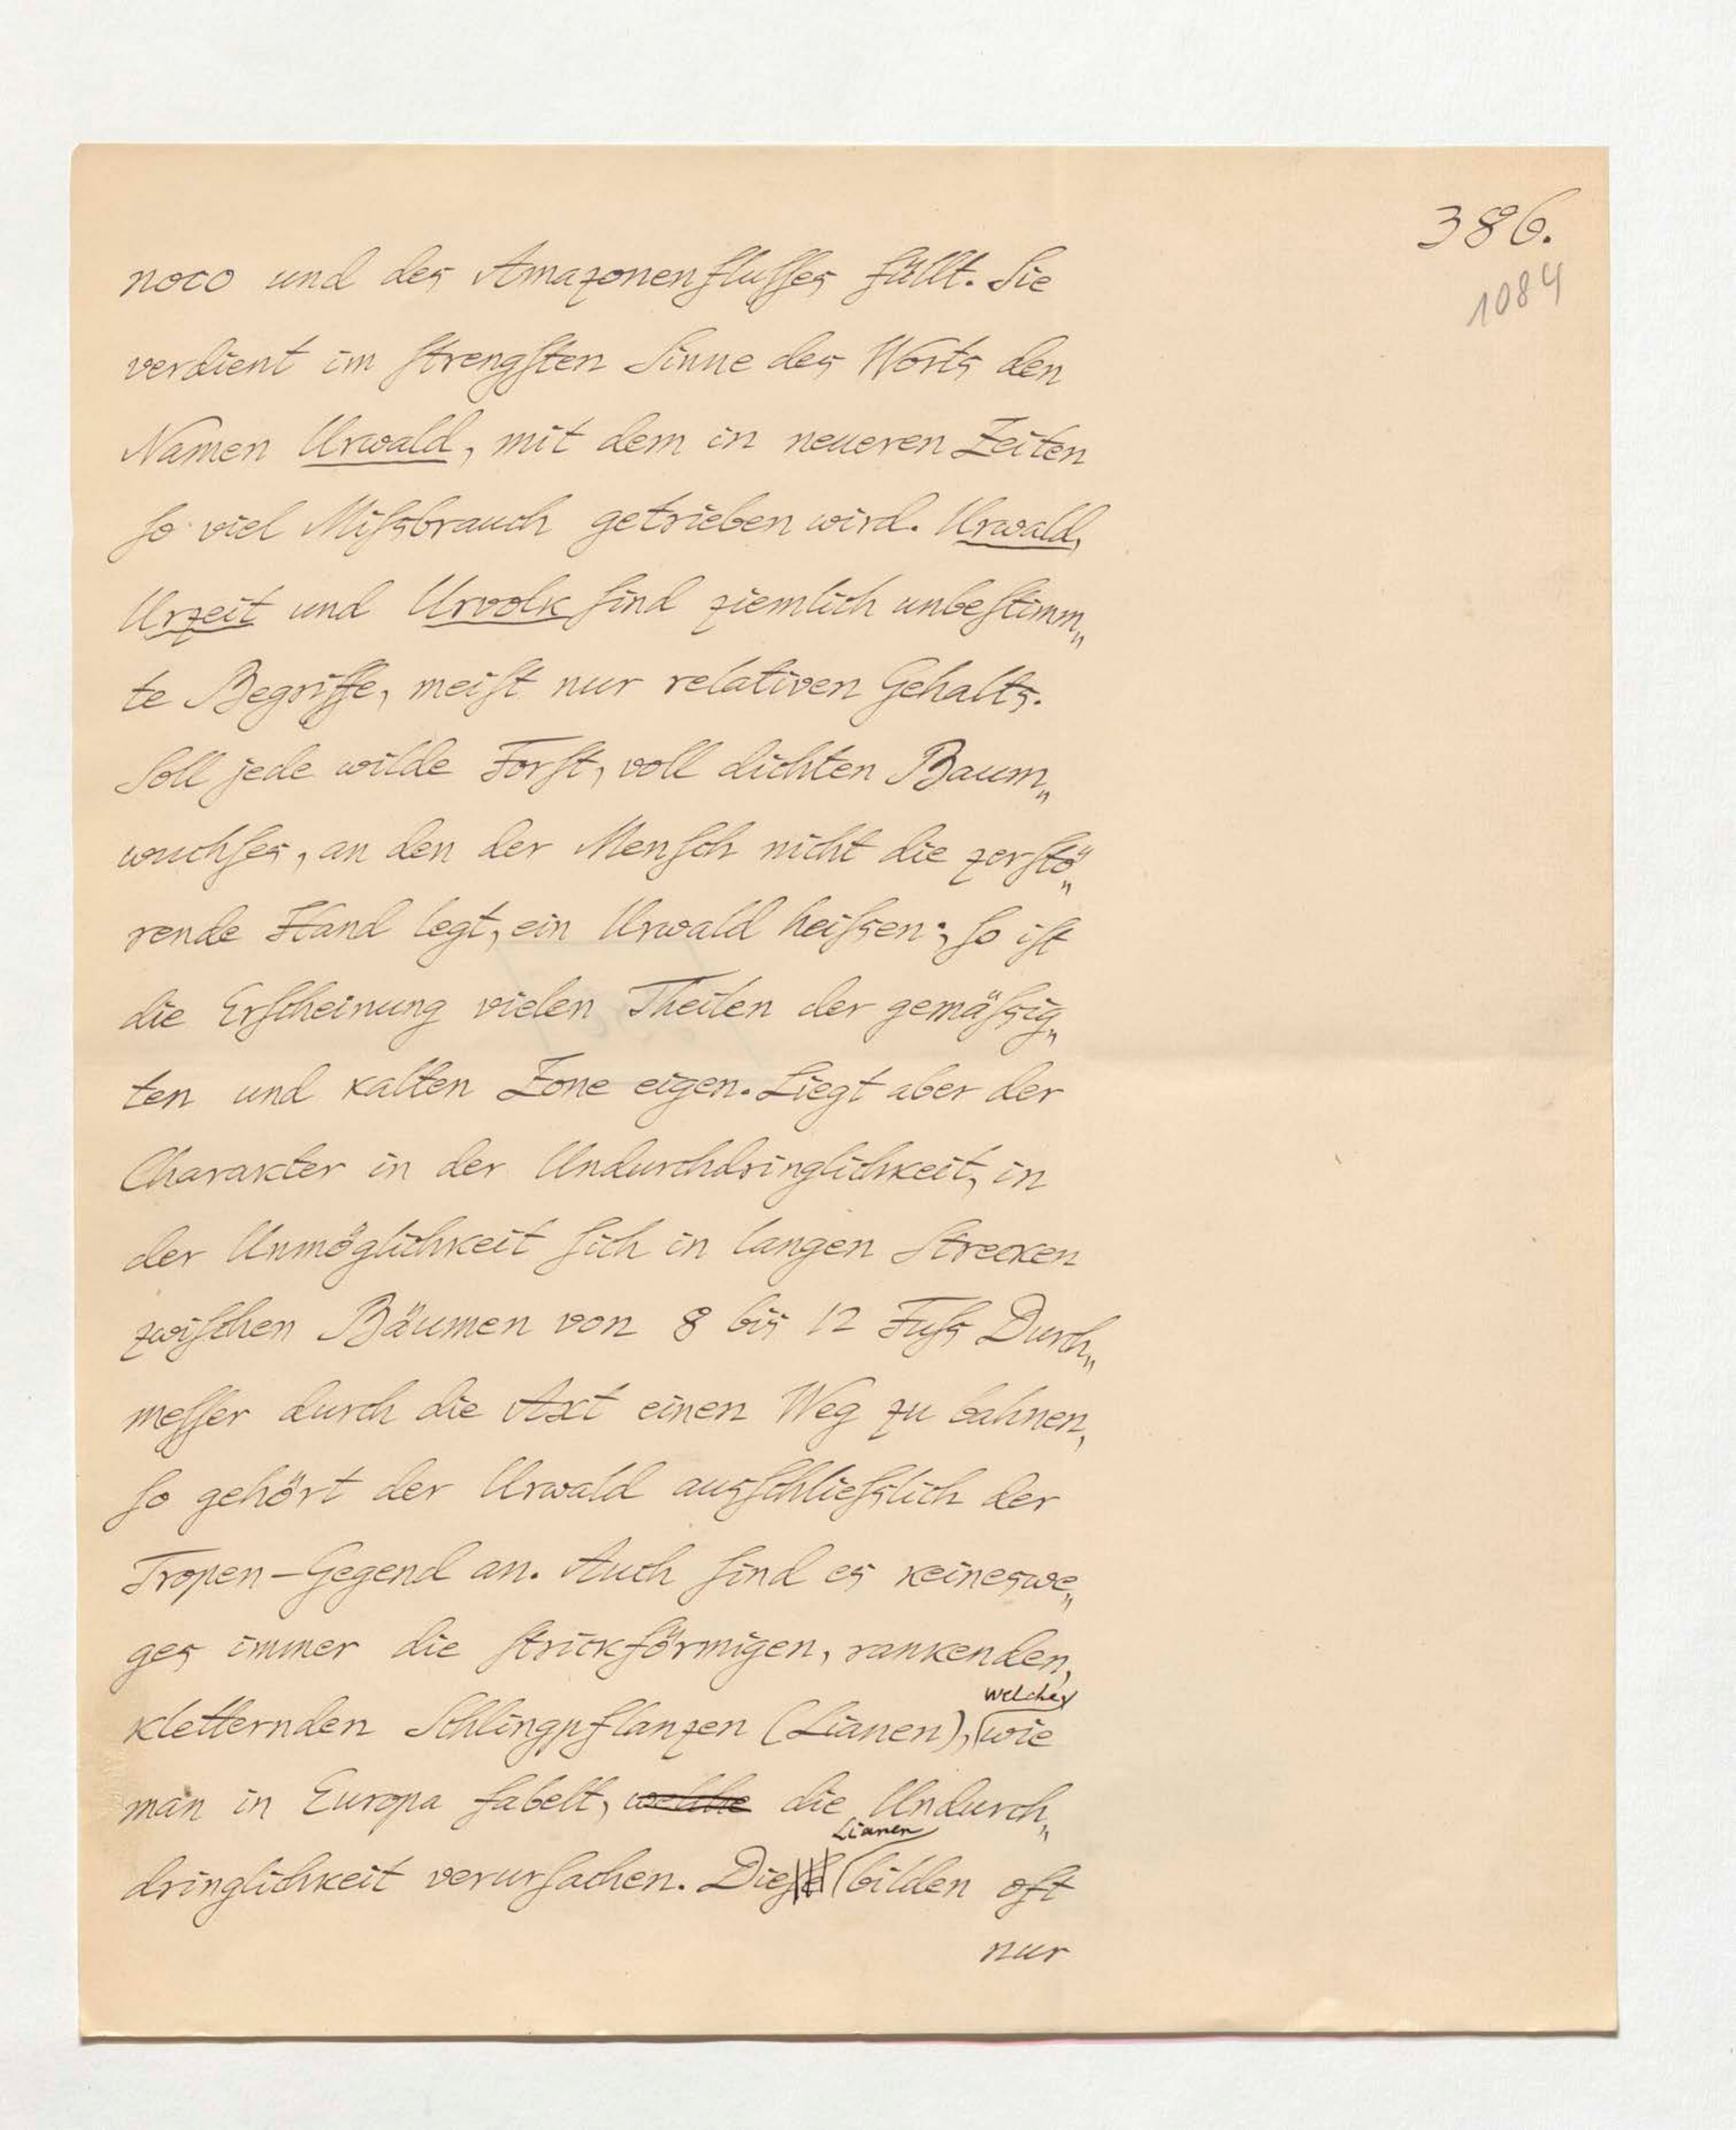 386.
1084
noco und des Amazonenflusses füllt. Sie
verdient im strengsten Sinne des Worts den
Namen Urwald, mit dem in neueren Zeiten
so viel Missbrauch getrieben wird. Urwald,
Urzeit und Urvolk sind ziemlich unbestimm„
te Begriffe, meist nur relativen Gehalts.
Soll jede wilde Forst, voll dichten Baum„
wuchses, an den der Mensch nicht die zerstö„
rende Hand legt, ein Urwald heissen; so ist
die Erscheinung vielen Theilen der gemässig„
ten und kalten Zone eigen. Liegt aber der
Charakter in der Undurchdringlichkeit, in
der Unmöglichkeit sich in langen Strecken
zwischen Bäumen von 8 bis 12 Fuss Durch„
messer durch die Axt einen Weg zu bahnen,
so gehört der Urwald ausschliesslich der
Tropen-Gegend an. Auch sind es keineswe„
ges immer die strickförmigen, rankenden,
welche,
kletternden Schlingpflanzen (Lianen), wie
man in Europa fabelt, welche die Undurch„
Lianen
dringlichkeit verursachen. Diese bilden oft
nur